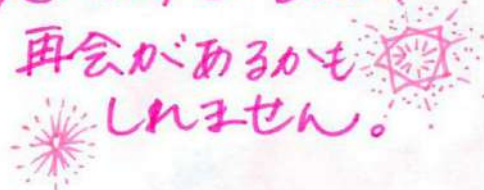 再会があるかも
しれません。